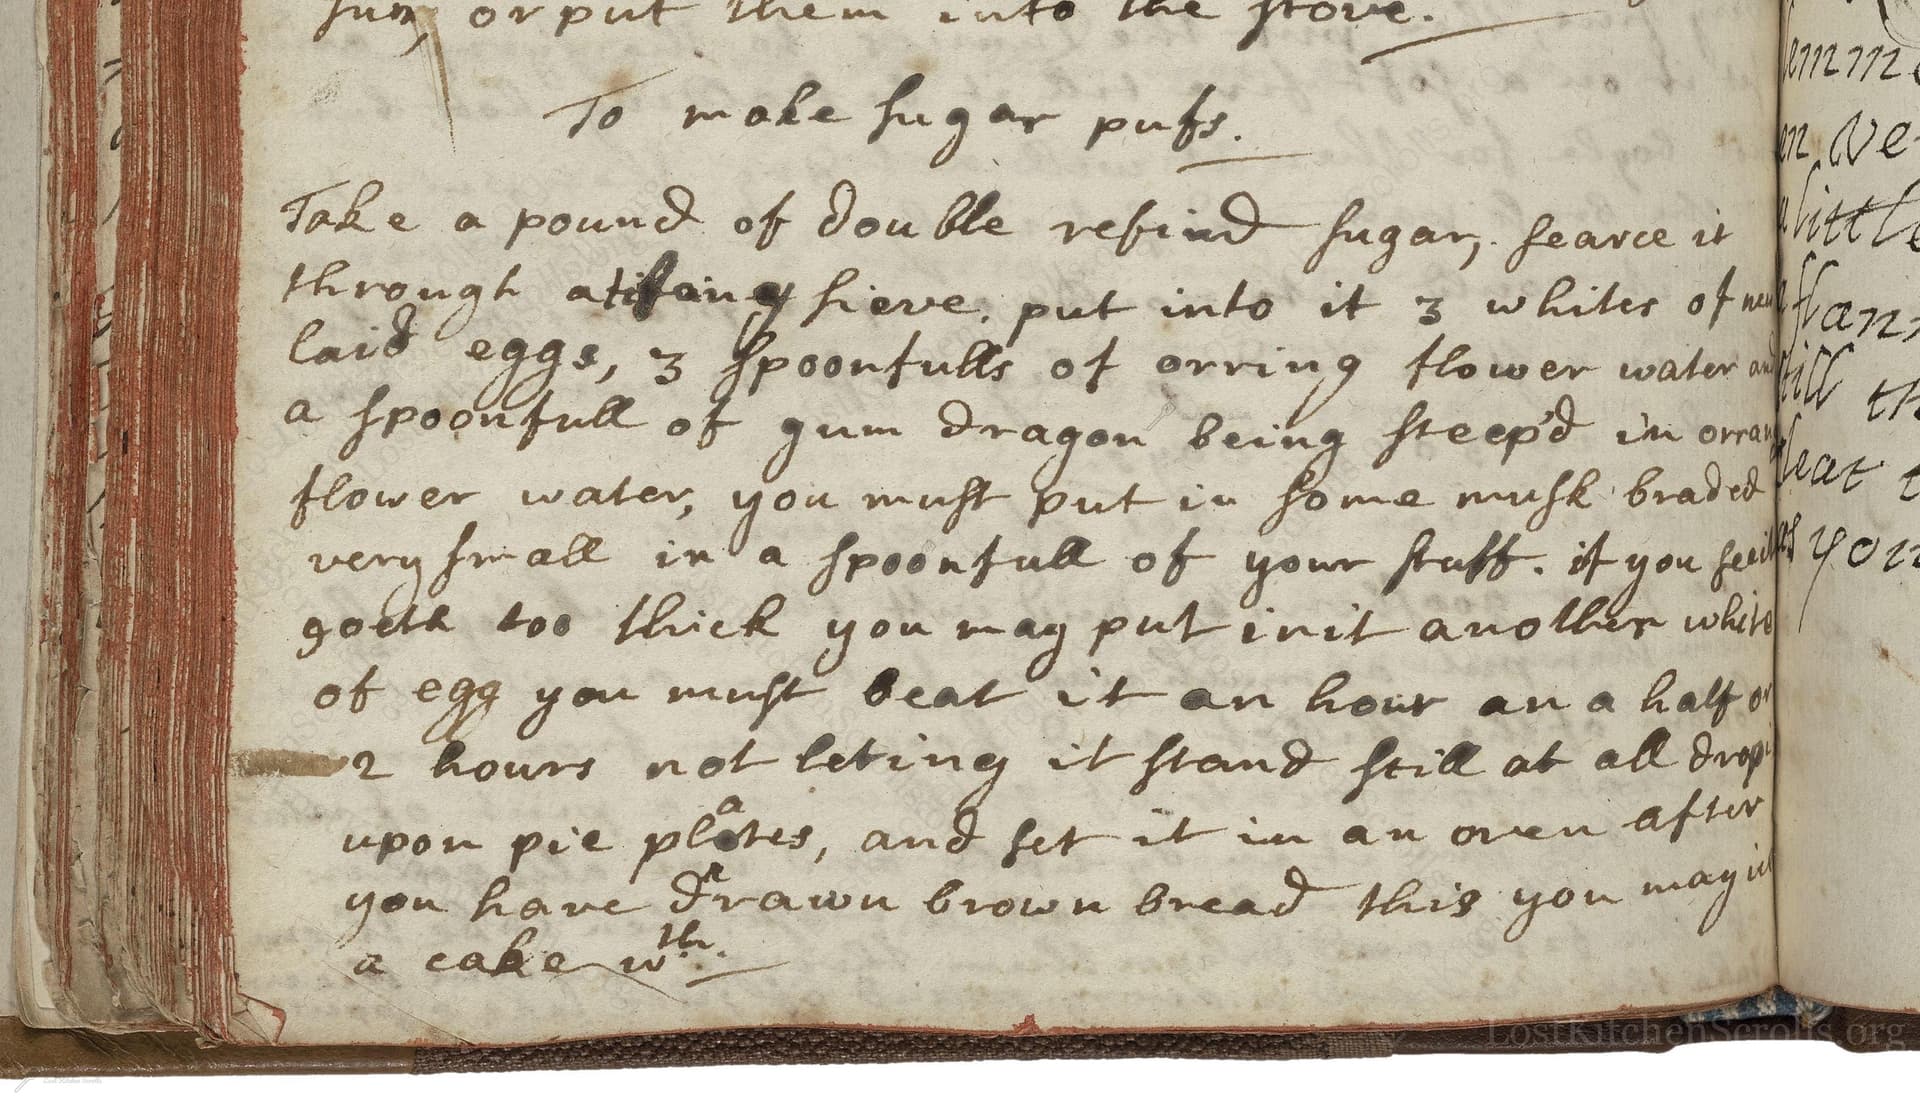 sun, or put them into the stove.
To make sugar pufs.
Take a pound of double refind sugar, searce it
through a tifany sieve. put into it 3 whites of new
laid eggs, 3 spoonfulls of orring flower water and
a spoonfull of gum dragon being steep'd in orrang
flower water, you must put in some musk braded
very small in a spoonfull of your stuff. if you see it
goeth too thick you may put in it another white
of egg you must beat it an hour an a half or
2 hours not leting it stand still at all drop
upon pie plates, and set it in an oven after
you have drawn brown bread this you may ice
a cake wth.
en We
little
till th
you
LostKitchenScrolls.org